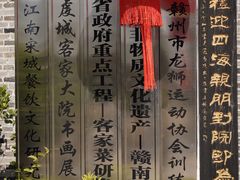 迎四海親朋到院即
赣州市龙狮运动协会训练
非物质文化遗产—赣南
省政府重点工程—客家菜研
虔城客家大院书画展
江南宋城餐饮文化研究